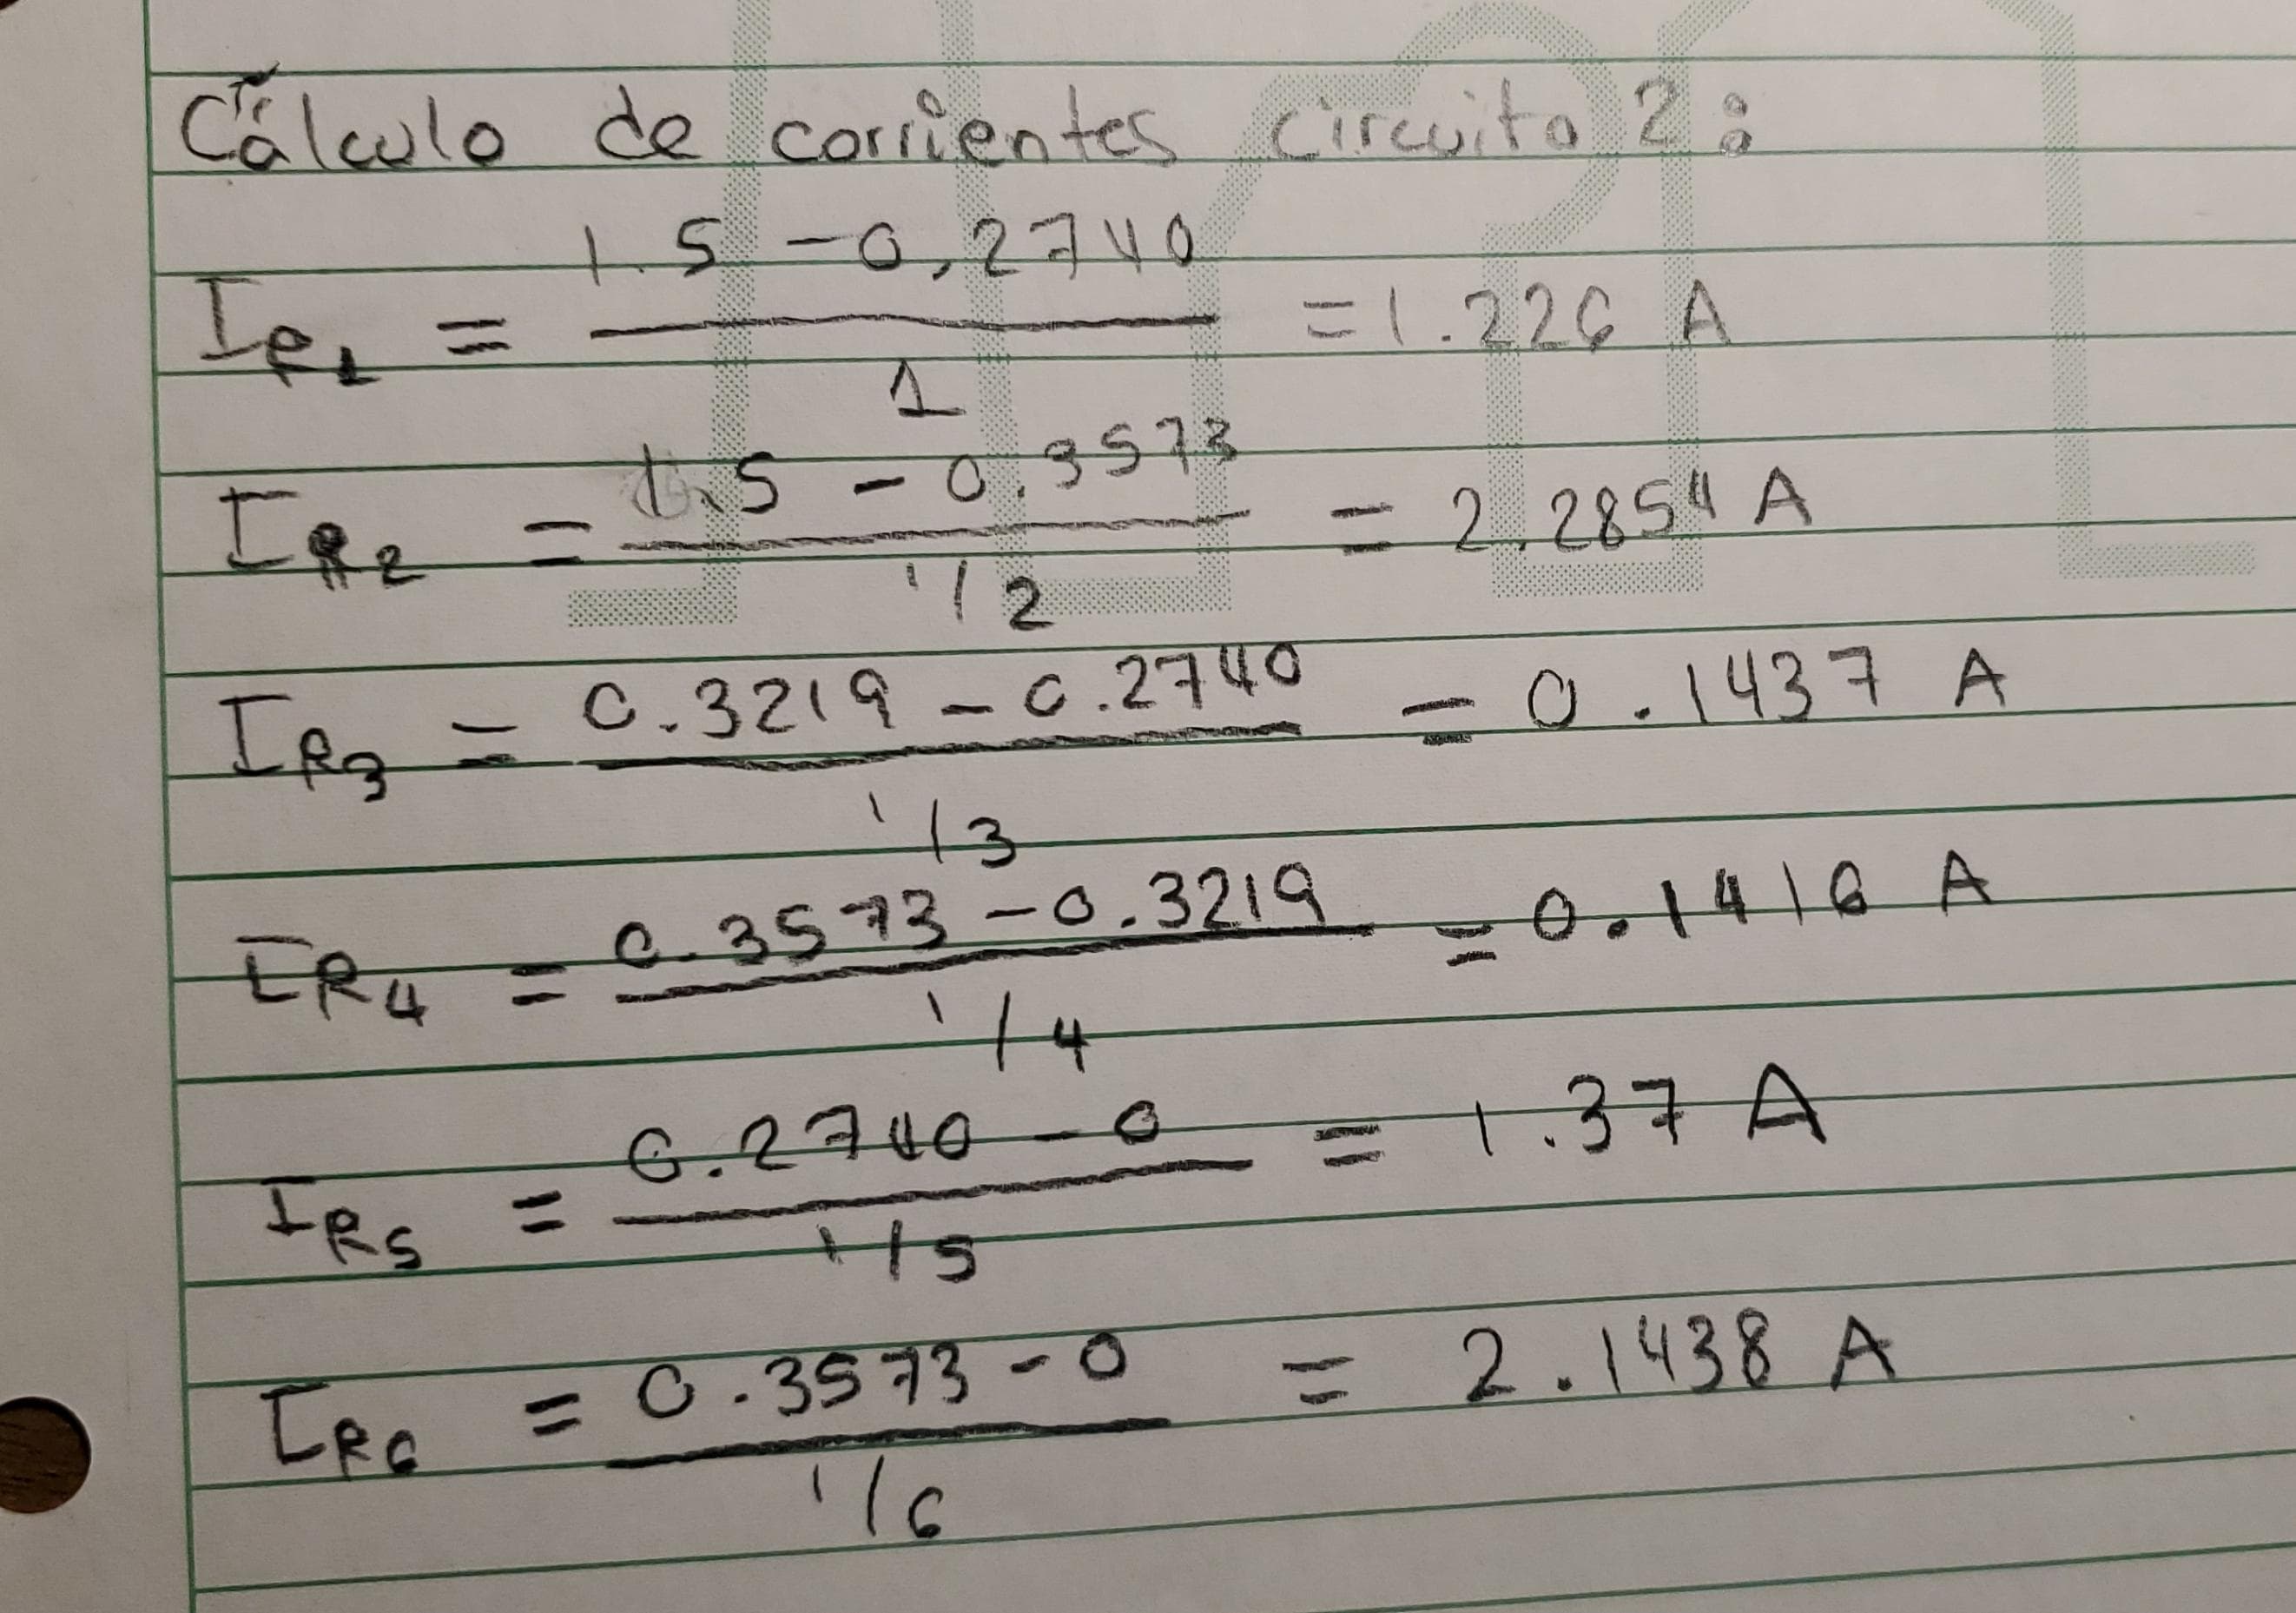 Cálculo de corrientes circuito 2:
I_R1 = (1.5 - 0.2740) / 1 = 1.226 A
I_R2 = (1.5 - 0.3573) / (1/2) = 2.2854 A
I_R3 = (0.3219 - 0.2740) / (1/3) = 0.1437 A
I_R4 = (0.3573 - 0.3219) / (1/4) = 0.1416 A
I_R5 = (0.2740 - 0) / (1/5) = 1.37 A
I_R6 = (0.3573 - 0) / (1/6) = 2.1438 A